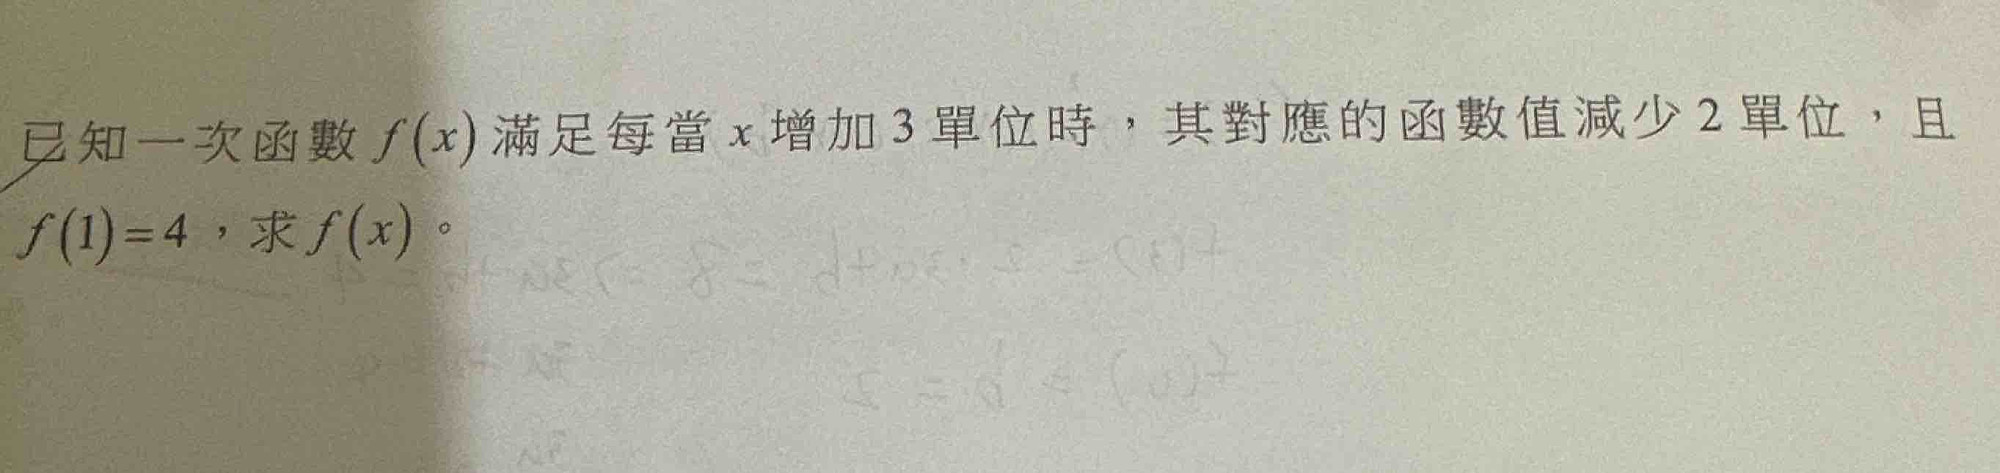 已知一次函數 f(x) 滿足每當 x 增加 3 單位時，其對應的函數值減少 2 單位，且
f(1)=4，求 f(x)。